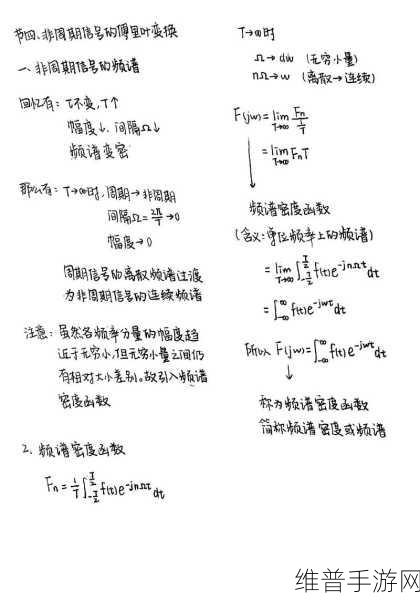 节四、非周期信号的傅里叶变换
一、非周期信号的频谱
回忆有：τ不变，T↑
幅度↓、间隔Ω↓
频谱变密
那么有：T→∞时，周期→非周期
间隔Ω=2π/T→0
幅度→0
周期信号的离散频谱过渡
为非周期信号的连续频谱
注意：虽然各频率分量的幅度趋
近于无穷小，但无穷小量之间仍
有相对大小差别。故引入频谱
密度函数
2、频谱密度函数
Fn=1/T∫_{-T/2}^{T/2}f(t)e^{-jnΩt}dt
T→∞时
Ω→dw（无穷小量）
nΩ→w（离散→连续）
F(jw)=lim_{T→∞} Fn/(1/T)
=lim_{T→∞} FnT
频谱密度函数
（含义：单位频率上的频谱）
=lim_{T→∞}∫_{-T/2}^{T/2}f(t)e^{-jnΩt}dt
=∫_{-∞}^{∞}f(t)e^{-jwt}dt
所以 F(jw)=∫_{-∞}^{∞}f(t)e^{-jwt}dt
称为频谱密度函数
简称频谱密度或频谱
维普手游网